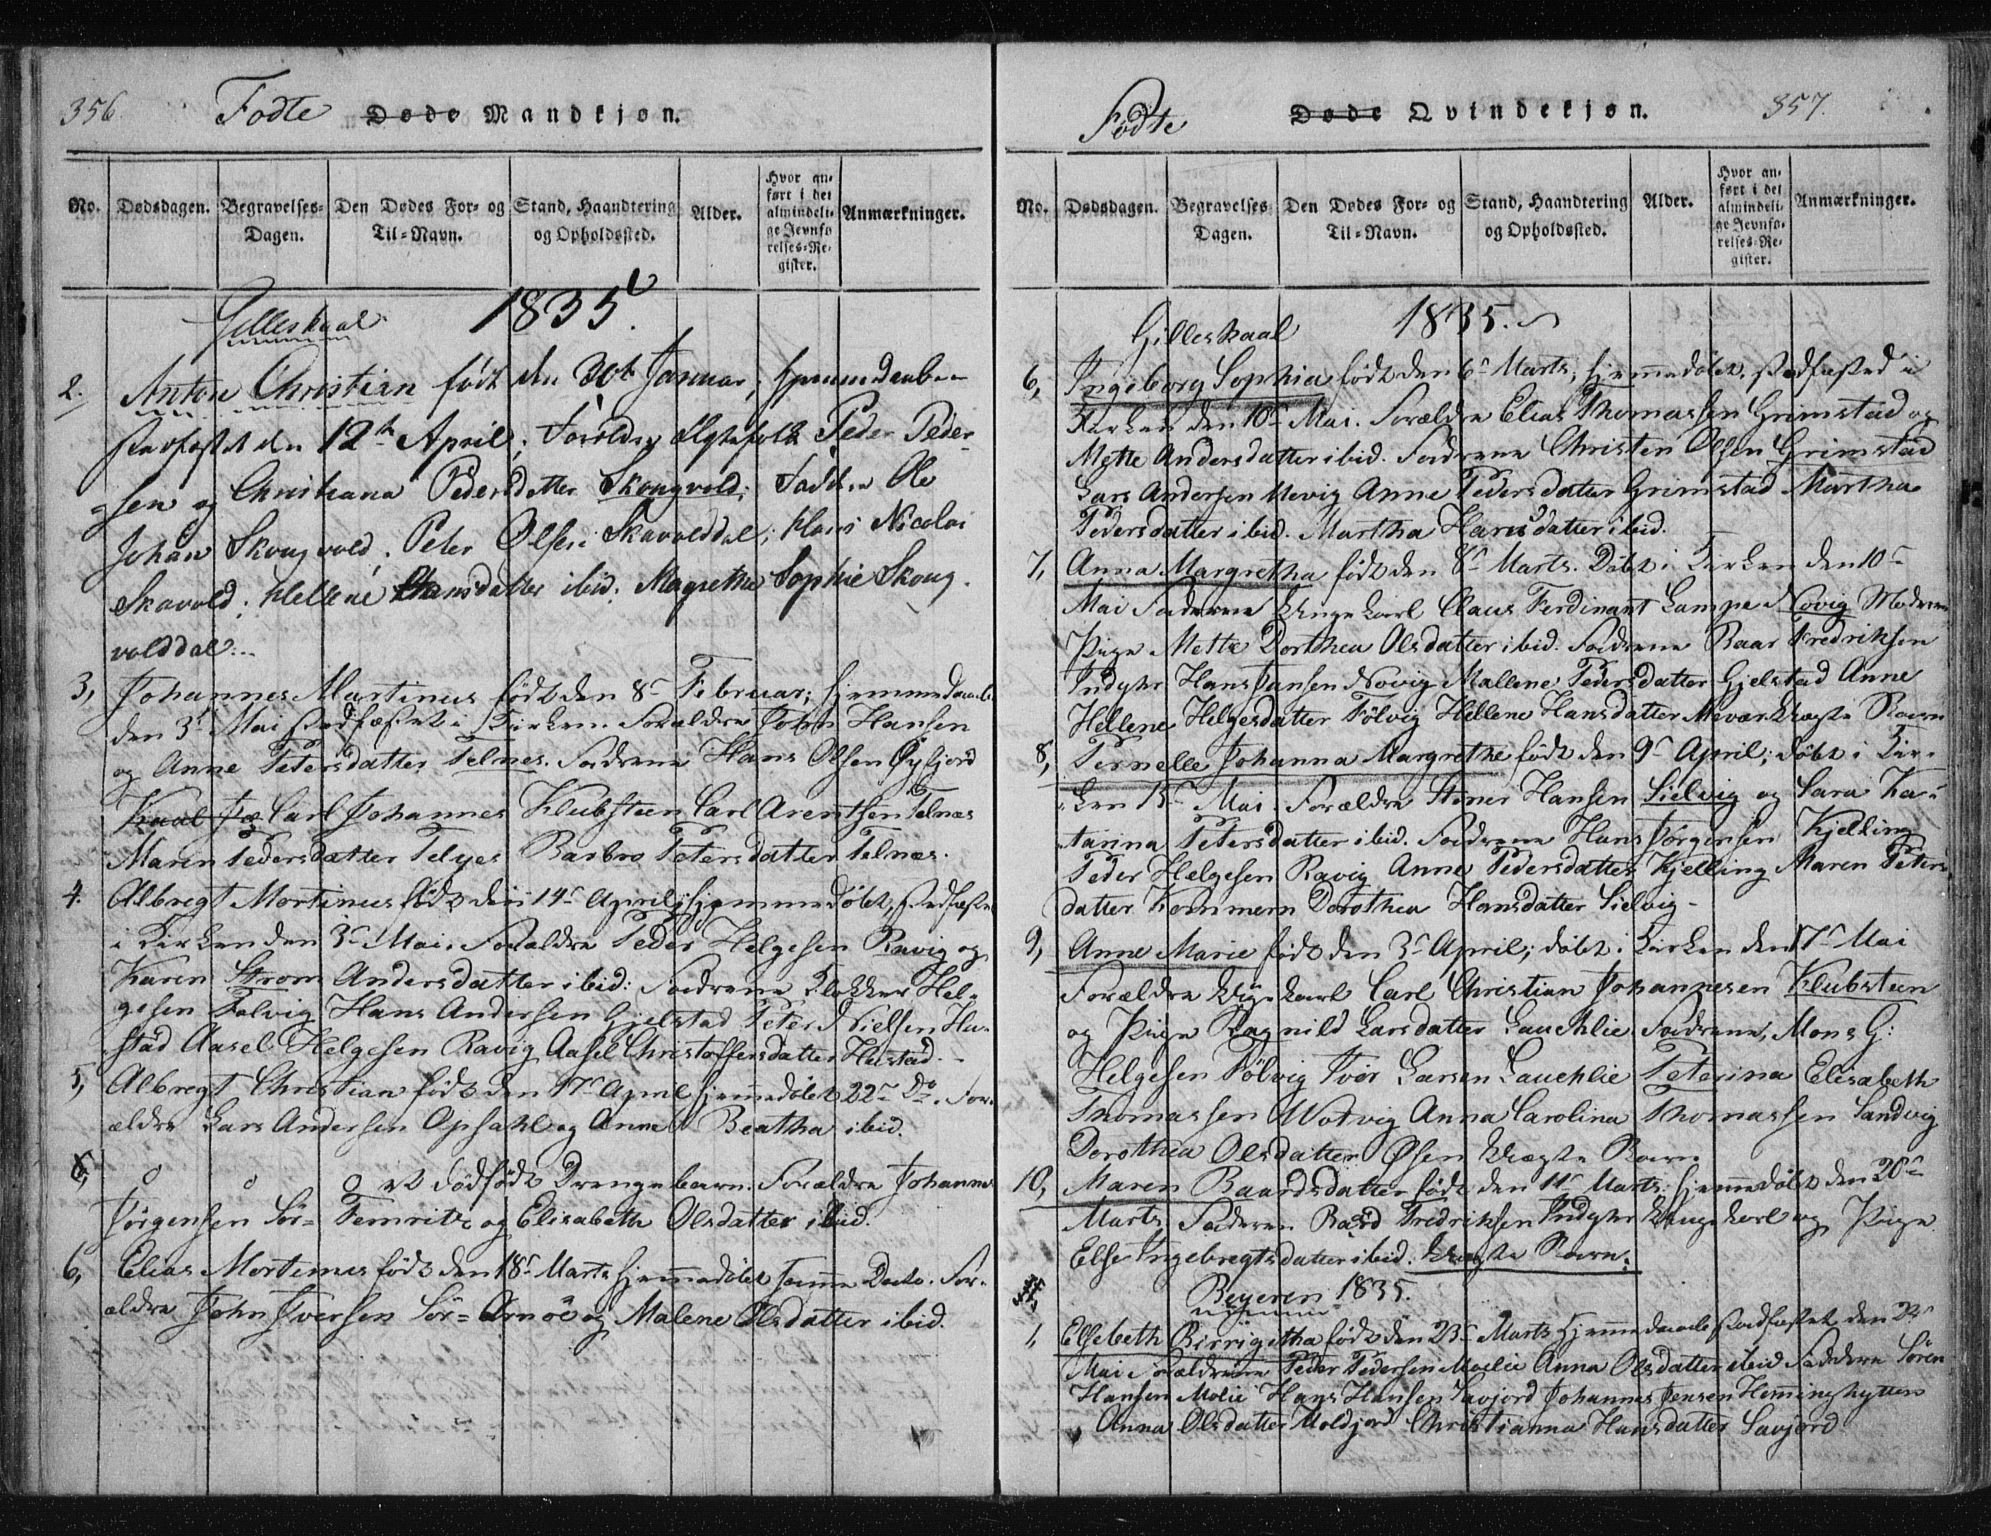 356. Fødte Døde Mandkjøn.
No. Dødsdagen. Begravelses-Dagen. Den Dødes For- og Til-Navn. Stand, Haandtering og Opholdssted. Alder. Hvor anført i det almindelige Jevnførelses-Register. Anmærkninger.
Gilleskaal 1835.
2. Anton Christian født den 30te Januar, hjemmedøbe-
stadfæstet den 12te April; Forældre Ægtefolk Peder Peder-
sen og Christiana Pedersdatter Skongvold; Fadder Ole
Johan Skongvold, Peter Olsen Skavolddal; Hans Nicolai
Skavold; Hellene Hansdatter ibid; Magrethe Sophie Skong-
volddal.
3, Johannes Martinus født den 8de Februar; hjemmedøbt
den 3die Mai stadfæstet i Kirken. Forældre John Hansen
og Anne Petersdatter Telnes. Faddrene Hans Olsen Øyfjord
Carl Johannes Klubsteen Carl Arentsen Telnæs
Maren Pedersdatter Telnes Barbro Petersdatter Telnæs.
4. Albregt Mortinus født den 14de April hjemmedøbt, stadfæstet
i Kirken den 3die Mai. Forældre Peder Helgesen Ravig og
Karen Strom Andersdatter ibid: Faddrene Klokker Hel-
gesen Følvig Hans Andersen Gjelstad Peter Nielsen Hu-
stad Aasel Helgesen Ravig Aasel Christoffersdatter Hustad.
5, Albregt Christian født den 17de April hjemmedøbt 22de Do. For-
ældre Lars Andersen Opsahl og Anne Beatha ibid.
6, o o o et dødfødt Drengebarn. Forældre Johannes
Jørgensen Sør= Femris og Elisabeth Olsdatter ibid.
6, Elias Mortinus født den 18de Marts hjemmedøbt samme Dato. For-
ældre John Iversen Sør=Arnøe og Malene Olsdatter ibid.
Fødte Døde Qvindekjøn. 357.
No. Dødsdagen. Begravelses Dagen. Den Dødes For- og Til-Navn. Stand, Haandtering og Opholdssted. Alder. Hvor anført i det almindelige Jevnførelses-Register. Anmærkninger.
Gilleskaal 1835.
6, Ingeborg Sophia født den 6te Marts, hjemmedøbt, stadfæsted i
Kirken den 10de Mai. Forældre Elias Thomassen Grimstad og
Mette Andersdatter ibid. Faddrene Christen Olsen Grimstad
Lars Andersen Mevig Anne Pedersdatter Grimstad Martha
Pedersdatter ibid. Martha Hansdatter ibid.
7, Anna Margretha født den 8de Marts. Døbt i Kirken den 10de
Mai Faderen Ungekarl Claus Ferdinant Lampe Novig Moderen
Pige Mette Dorthea Olsdatter ibid. Faddrene Baar Fredriksen
Indyhr Hans Jansen Novig Mallene Pedersdatter Gjelstad Anne
Hellene Helgesdatter Følvig Hellene Hansdatter Mevær Uægte Barn
8, Pernelle Johanna Margrethe født den 9de April; døbt i Kir-
ken 15de Mai. Forældre Stener Hansen Sielvig og Sara Ka-
tarina Petersdatter ibid. Faddrene Hans Jørgensen Kjelling
Peder Helgesen Ravig Anne Pedersdatter Kjelling Maren Peters-
datter Kommern Dorothea Hansdatter Sielvig -
9, Anne Marie født den 3die April; døbt i Kirken den 17de Mai
Forældre Ungekarl Carl Christian Johannesen Klubsteen
og Pige Ragnild Larsdatter Lauchlie Faddrene, Mons G:
Helgesen Følvig Iver Larsen Lauchlie Peterina Elisabeth
Thomassen Wotvig Anna Carolina Thomassen Sandvig
Dorothea Olsdatter Øsen Uægte Barn
10, Maren Baardsdatter født den 11te Marts, hjemmedøbt den 20de
Marts Faderen Baard Fredriksen Indyhr Ungekarl og Pige
Else Ingebregtsdatter ibid. Uægte Barn.
Beyeren 1835.
1, Elsebeth Birrigitha født den 23de Marts hjemmedøbt stadfæstet den 2de
Mai Forældrene Peder Pedersen Moelie Anna Olsdatter ibid Faddere Søren
Hansen Molie Hans Hansen Savjord Johannes Jensen Hemminghytten
Anna Olsdatter Moldjord Christianna Hansdatter Savjord